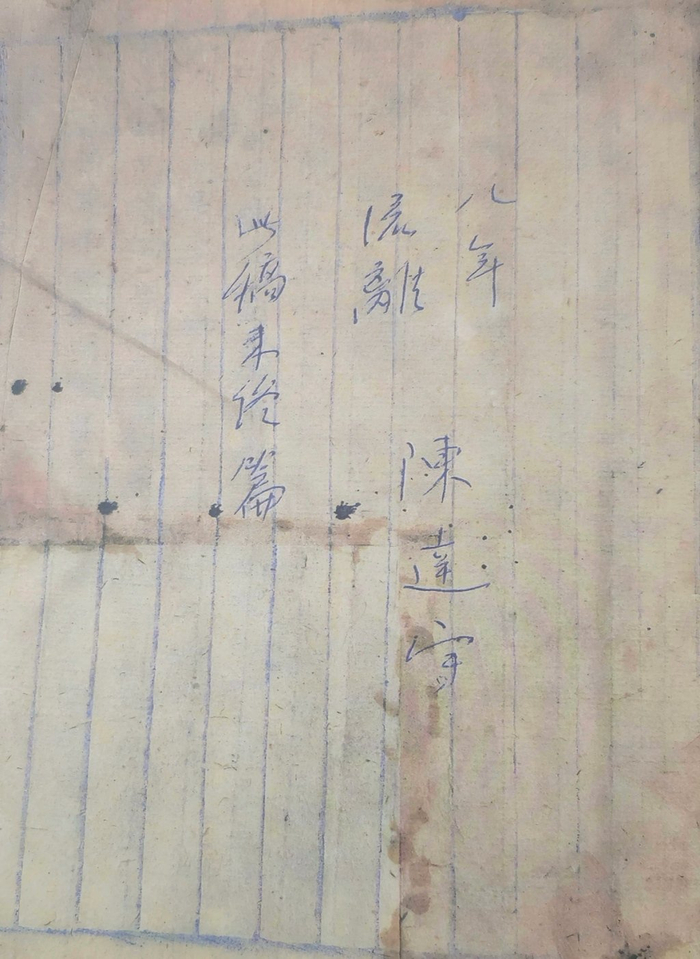 八年
流離
陳達守
此稿未終篇